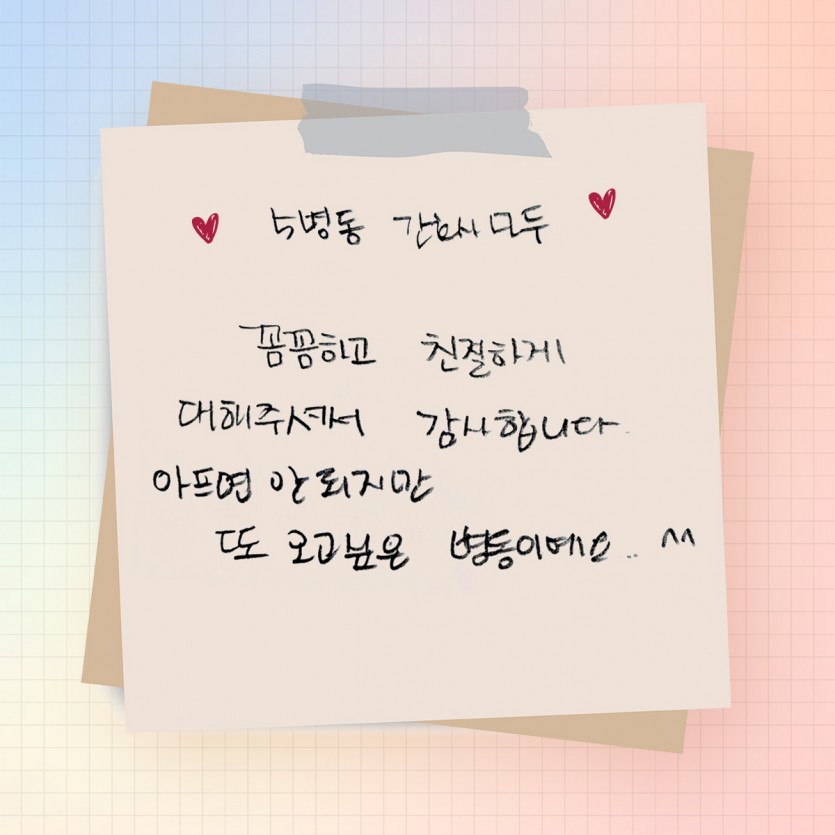 5병동 간호사 모두
꼼꼼하고 친절하게
대해주셔서 감사합니다.
아프면 안되지만
또 오고싶은 병동이에요.. ^^